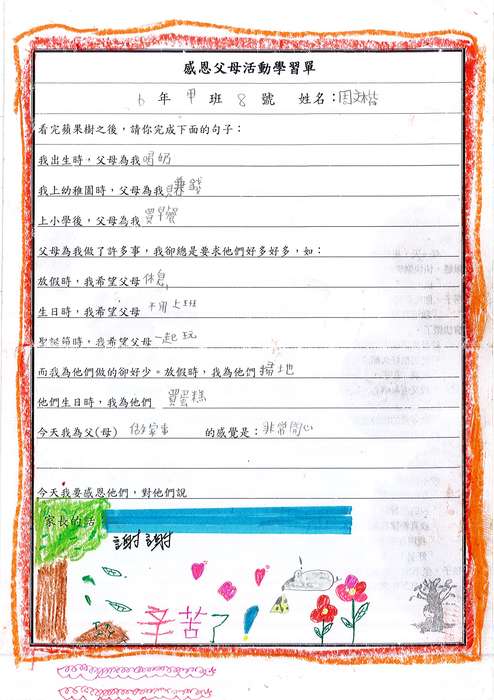 感恩父母活動學習單
6 年 甲 班 8 號 姓名：周文楷
看完蘋果樹之後，請你完成下面的句子：
我出生時，父母為我喝奶
我上幼稚園時，父母為我賺錢
上小學後，父母為我買早餐
父母為我做了許多事，我卻總是要求他們好多好多，如：
放假時，我希望父母休息
生日時，我希望父母不用上班
聖誕節時，我希望父母一起玩
而我為他們做的卻好少。放假時，我為他們掃地
他們生日時，我為他們買蛋糕
今天我為父(母)做家事的感覺是：非常開心
今天我要感恩他們，對他們說
家長的話
謝謝
辛苦了！